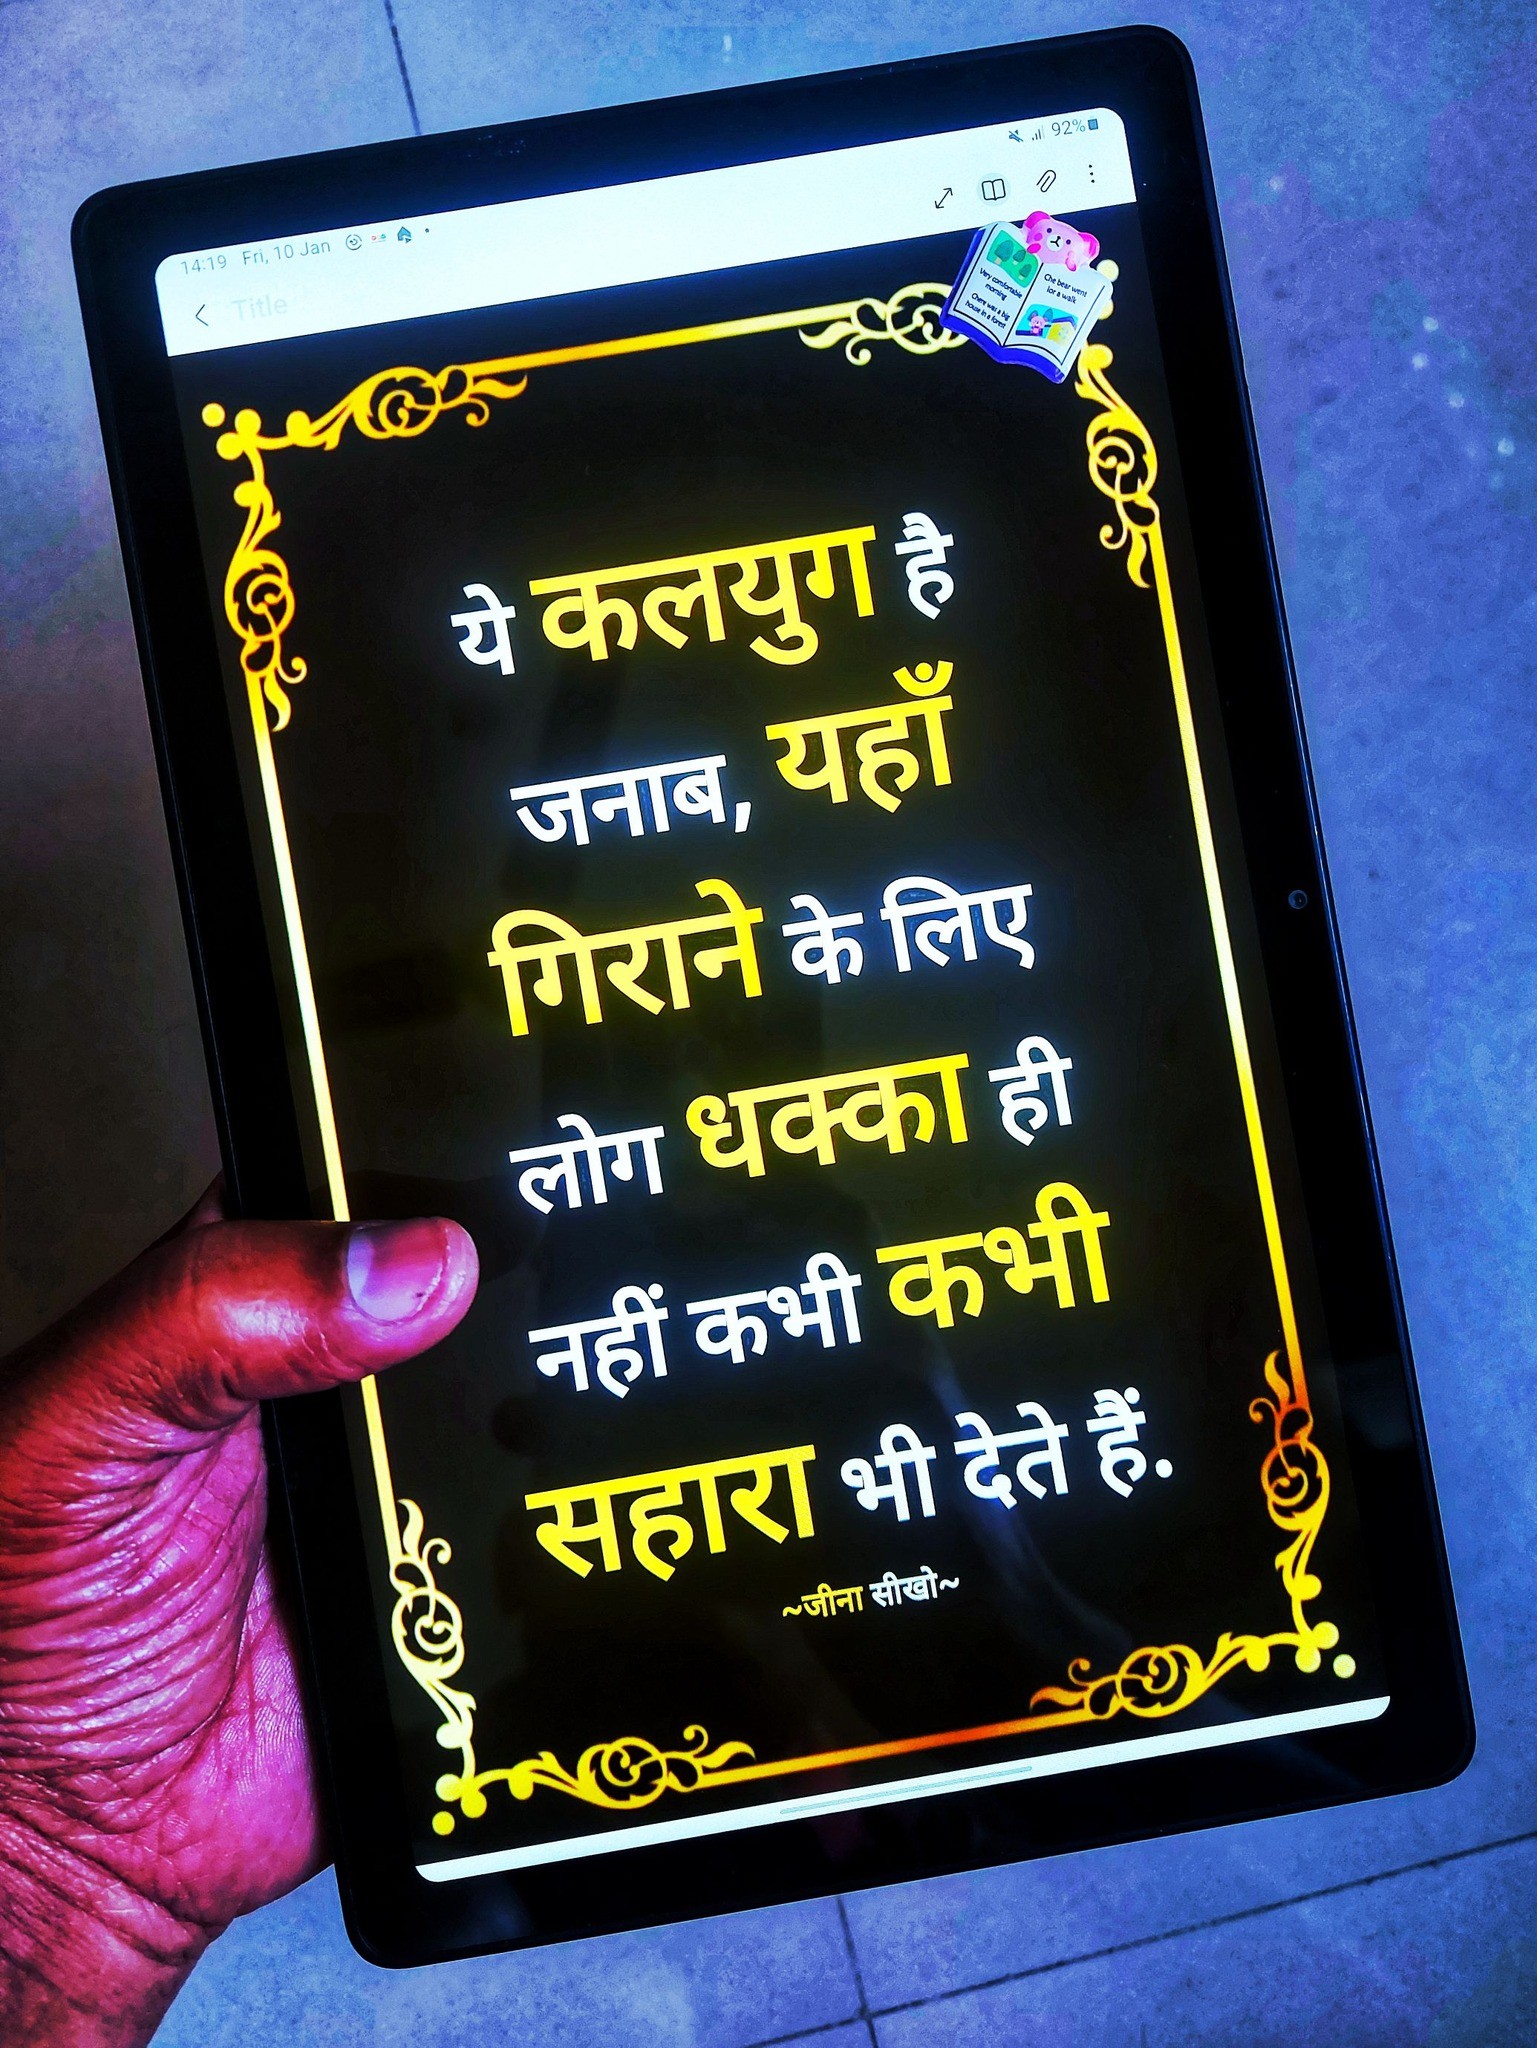 14:19 Fri, 10 Jan
92%
Title
Very comfortable
morning
There was a big
house in a forest
Che bear went
for a walk
ये कलयुग है
जनाब, यहाँ
गिराने के लिए
लोग धक्का ही
नहीं कभी कभी
सहारा भी देते हैं.
~जीना सीखो~